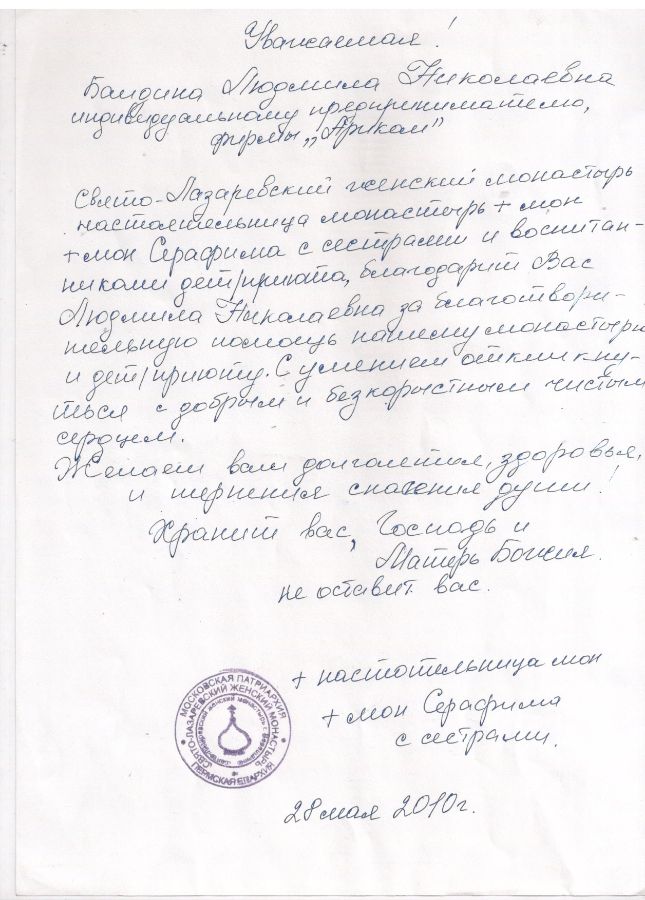 Уважаемая!
Балдина Людмила Николаевна
индивидуальному предпринимателю,
фирмы „Ариком"
Свято-Лазаревский женский монастырь
настоятельница монастырь + мон
+ мон Серафима с сестрами и воспитан-
никами дет/приюта, благодарит Вас
Людмила Николаевна за благотвори-
тельную помощь нашему монастырю
и дет/приюту. С умением откликну-
ться с добрым и безкорыстным чистым
сердцем.
Желаем вам долголетия, здоровья,
и терпения спасения души!
Хранит вас, Господь и
Матерь Божия.
не оставит вас.
+ настотельница мон
+ мон Серафима
с сестрами.
МОСКОВСКАЯ ПАТРИАРХИЯ
СВЯТО-ЛАЗАРЕВСКИЙ ЖЕНСКИЙ МОНАСТЫРЬ
ПЕРМСКАЯ ЕПАРХИЯ
28 мая 2010г.